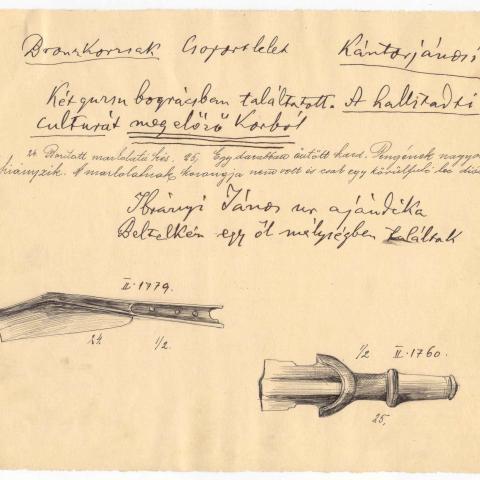 Bronzkorszak Csoportlelet Kántorjánosi
Két gursu bográcsban találtatott. A hallstadti
culturát megelőző Korból
24. Borított marlolatú kés. 25, Egy darabban öntött kard. Pengének nagyob
hiányzik. A marlolatnak korongja nem volt és csak egy körülfutó léc dísz
Ibrányi János ur ajándéka
Beltelkén egy öl mélységben találtak
II. 1779.
24.
1/2.
1/2 II. 1760.
25.